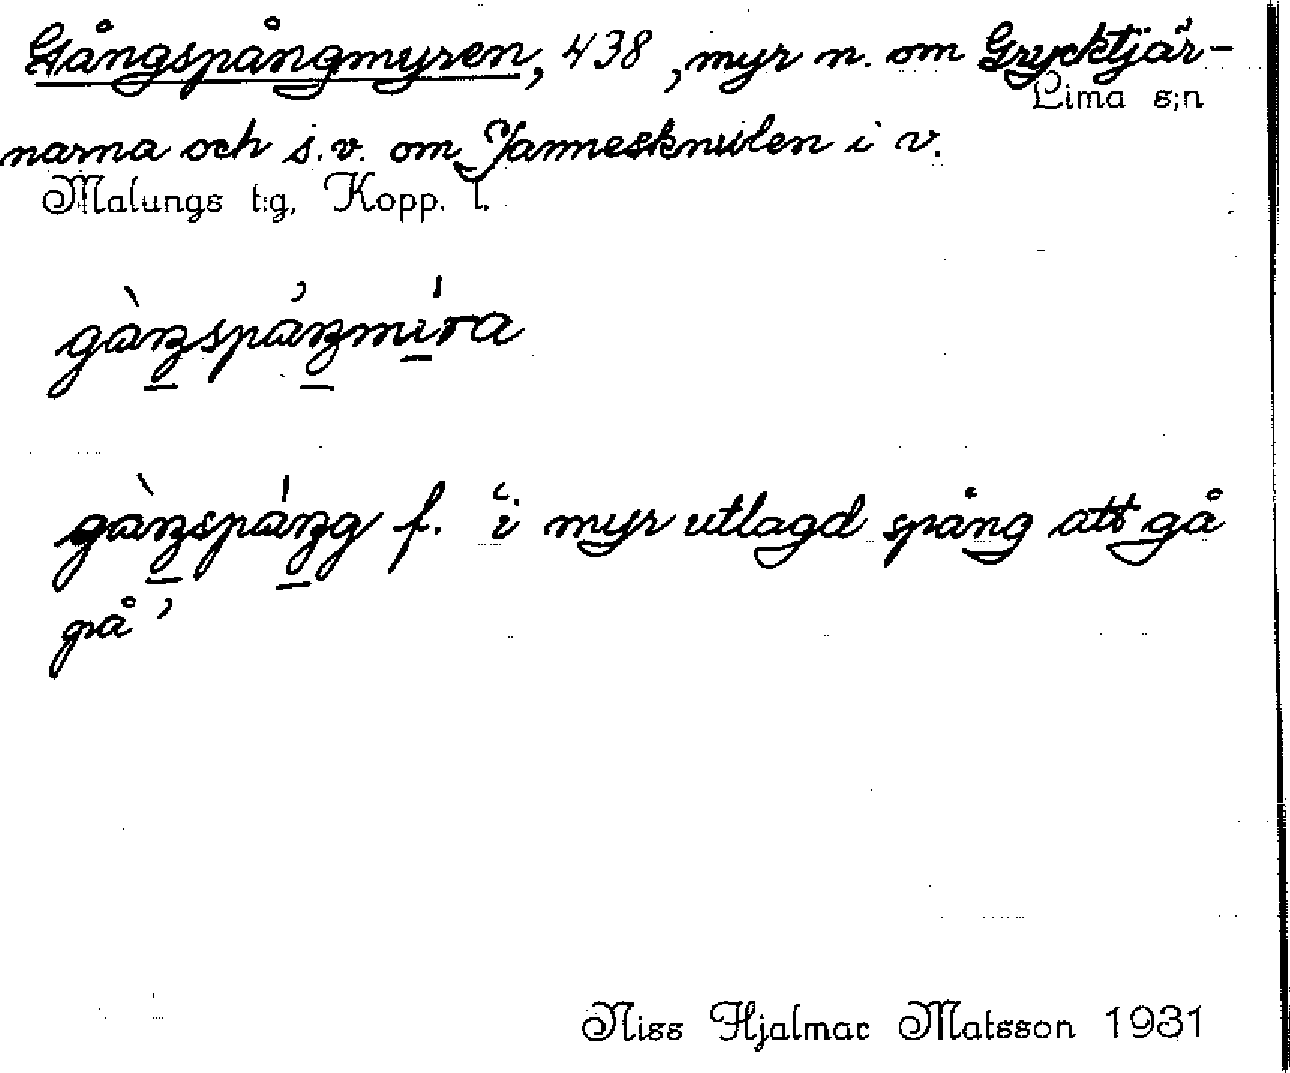 Gångspångmyren, 438, myr n. om Grycktjär-
Lima s:n
narna och s.v. om Jannesknulen i v.
Malungs t:g, Kopp. l.
gàŋspáŋmíra
gàŋspáŋg f. 'i myr utlagd spång att gå
på'
Niss Hjalmar Matsson 1931